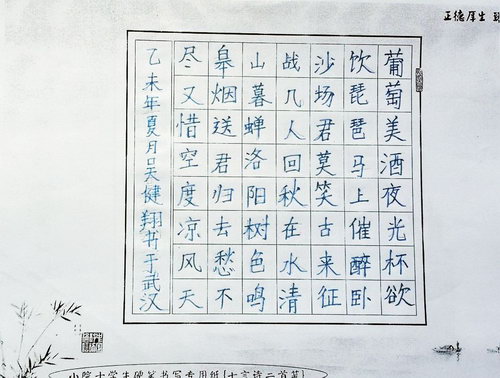 正德厚生
葡萄美酒夜光杯欲
饮琵琶马上催醉卧
沙场君莫笑古来征
战几人回秋在水清
山暮蝉洛阳树色鸣
皋烟送君归去愁不
尽又惜空度凉风天
乙未年夏月吴健翔书于武汉
小院士学生硬笔书写专用纸[七言诗二首篇]